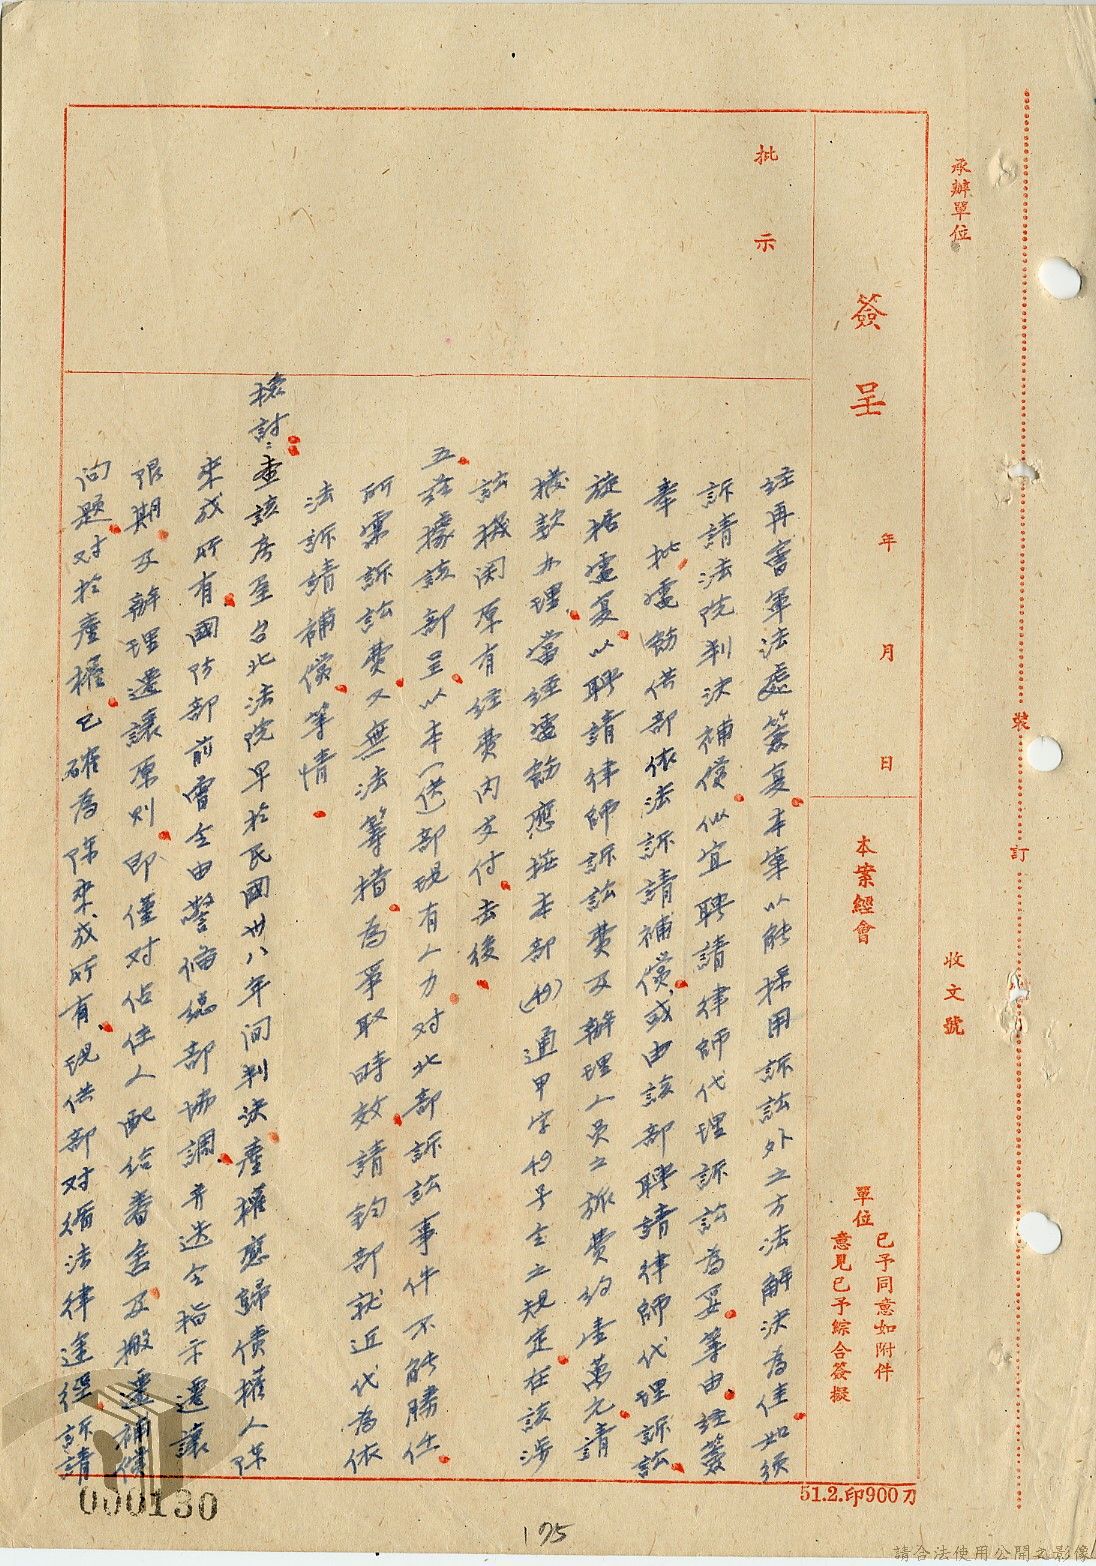 承辦單位
收文號
裝
訂
簽呈
年
月
日
本案經會
單位
已予同意如附件
意見已予綜合簽擬
批
示
經再會軍法處簽復本軍以能採用訴訟外之方法解決為佳如須
訴請法院判決補償似宜聘請律師代理訴訟為妥等由經簽
奉 批處飭供部依法訴請補償或由該部聘請律師代理訴訟
旋據處復以聘請律師訴訟費及辦理人員之旅費約壹萬元請
撥款办理當經處飭應按本部(49)通甲字49号令之規定在該涉
訟機関原有經費內支付去後
五茲據該部呈以本(供)部現有人力对北部訴訟事件不能勝任
所需訴訟費又無法籌措為爭取時效請鈞部就近代為依
法訴請補償等情
檢討:查該房至台北法院早於民國卅八年间判決產權應歸債權人陈
來成所有國防部前曾令由警備總部協調并迭令指示遷讓
限期及辦理遷讓原則即僅对佔住人配給眷舍及搬遷補償
问題对於產權已確為陈來成所有現供部对循法律途經訴請
51.2.印900刀
000130
175
請合法使用公開之影像